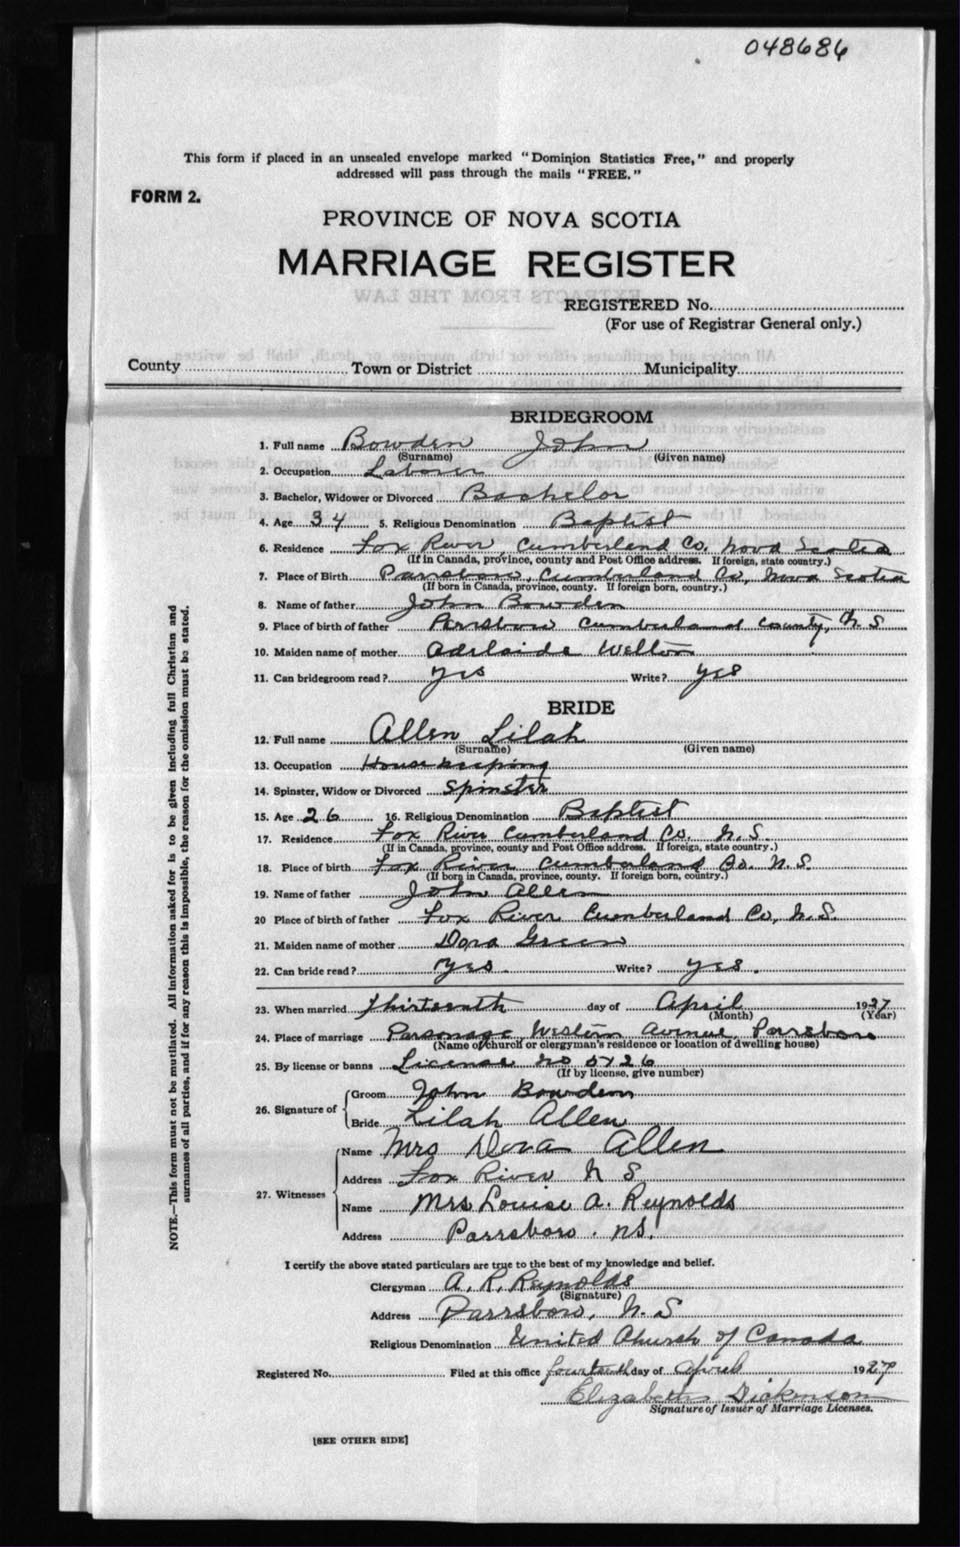 048686
This form if placed in an unsealed envelope marked "Dominion Statistics Free," and properly
addressed will pass through the mails "FREE."
FORM 2.
PROVINCE OF NOVA SCOTIA
MARRIAGE REGISTER
EXTRACTS FROM THE LAW
REGISTERED No.
(For use of Registrar General only.)
County Town or District Municipality
BRIDEGROOM
1. Full name Bowden John
(Surname) (Given name)
2. Occupation Laborer
3. Bachelor, Widower or Divorced Bachelor
4. Age 34 5. Religious Denomination Baptist
6. Residence Fox River, Cumberland Co. Nova Scotia
(If in Canada, province, county and Post Office address. If foreign, state country.)
7. Place of Birth Parrsboro, Cumberland Co, Nova Scotia
(If born in Canada, province, county. If foreign born, country.)
8. Name of father John Bowden
9. Place of birth of father Parrsboro Cumberland County, N S
10. Maiden name of mother Adelaide Welton
11. Can bridegroom read? yes Write? yes
BRIDE
12. Full name Allen Lilah
(Surname) (Given name)
13. Occupation Housekeeping
14. Spinster, Widow or Divorced Spinster
15. Age 26 16. Religious Denomination Baptist
17. Residence Fox River Cumberland Co. N.S.
(If in Canada, province, county and Post Office address. If foreign, state country.)
18. Place of birth Fox River Cumberland Co. N.S.
(If born in Canada, province, county. If foreign born, country.)
19. Name of father John Allen
20 Place of birth of father Fox River Cumberland Co, N.S.
21. Maiden name of mother Dora Green
22. Can bride read? yes. Write? yes.
23. When married thirteenth day of April 1927
(Month) (Year)
24. Place of marriage Parsonage, Western Avenue, Parrsboro
(Name of church or clergyman's residence or location of dwelling house)
25. By license or banns License no
(If by license, give number)
26. Signature of Groom John Bowden
Bride Lilah Allen
27. Witnesses Name Mrs Dora Allen
Address Fox River N S
Name Mrs Louise A. Reynolds
Address Parrsboro. NS.
I certify the above stated particulars are true to the best of my knowledge and belief.
Clergyman A. R. Reynolds
(Signature)
Address Parrsboro, N. S
Religious Denomination United Church of Canada
Registered No. Filed at this office fourteenth day of April 1927
Elizabeth Dickinson
Signature of Issuer of Marriage Licenses.
[SEE OTHER SIDE]
NOTE.—This form must not be mutilated. All information asked for is to be given including full Christian and
surnames of all parties, and if for any reason this is impossible, the reason for the omission must be stated.